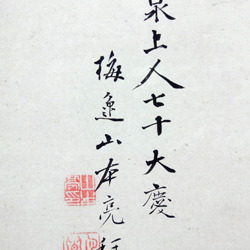 泉上人七十大慶
梅逸山本亮